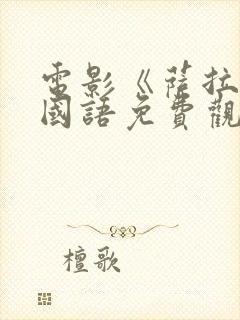 電影《薩拉
國語免費觀
檀歌